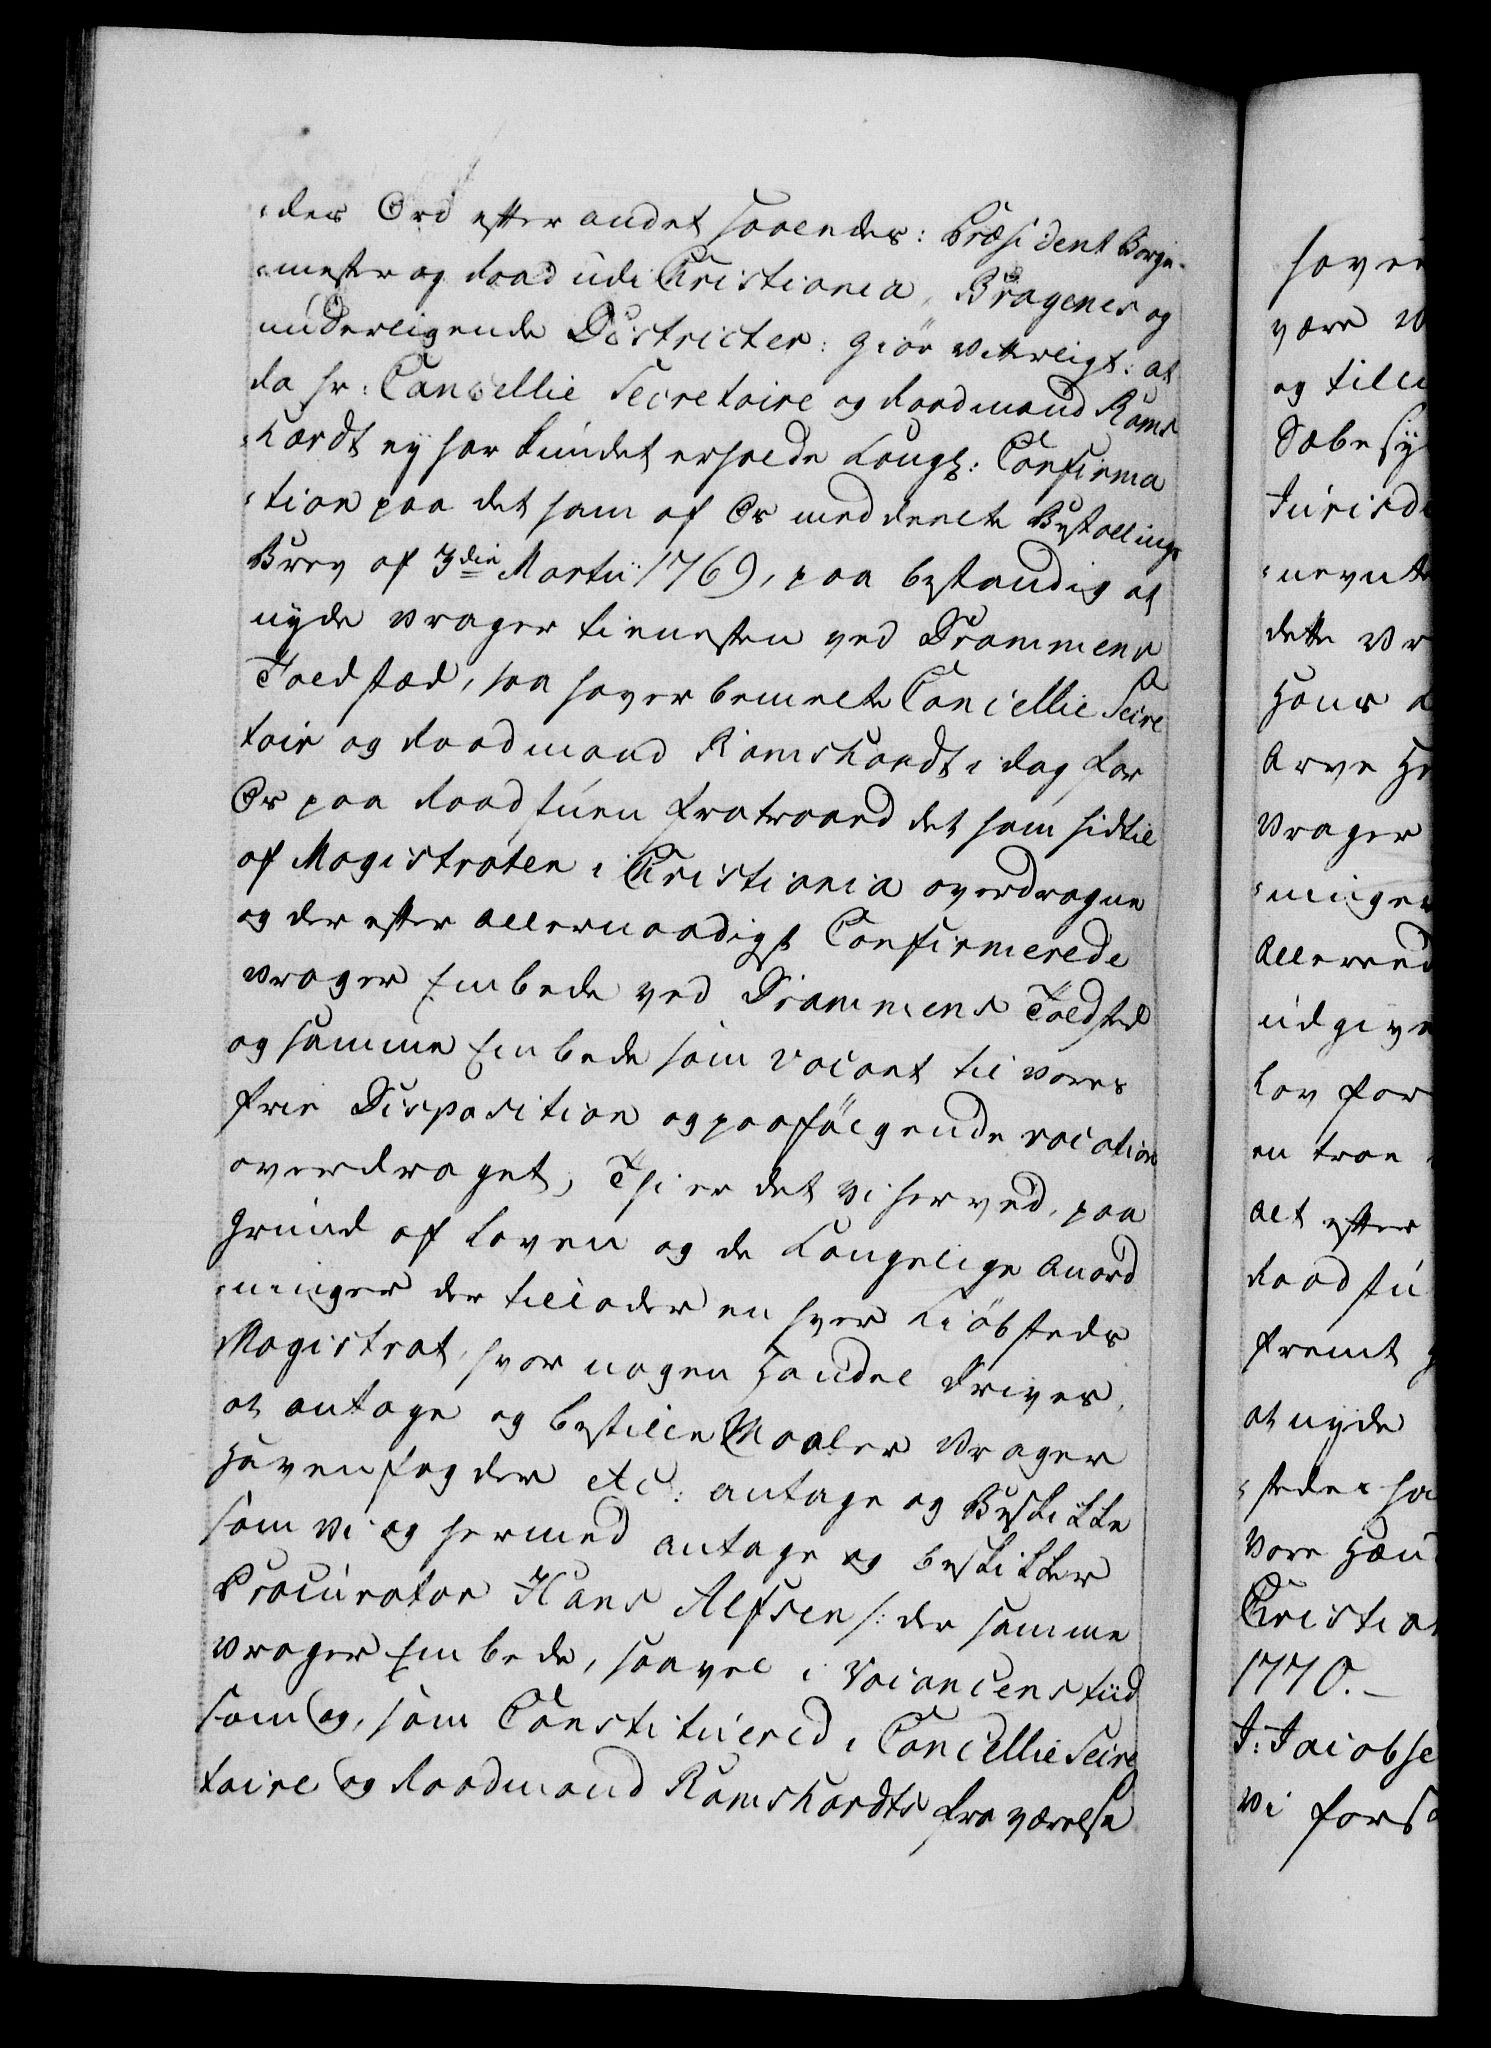 -der Ord efter andet saaledes: Præsident Borge-
-mester og Raad udi Christiania, Bragenes og
underligende Districter: giør vitterligt: at
da hr: Cancellie Secretaire og Raadmand Rams
-hardt ej har kundet erholde Kongl: Confirma
-tion paa det ham af Os meddeelte Bestallings
Brev af 3die Martii 1769, paa bestandig at
nyde Vrager tienesten ved Drammens
Toldsted, saa haver bemelte Cancellie Secre
tair og Raadmand Ramshardt i dag for
Os paa Raadstuen fratraadt det ham hidtil
af Magistraten i Christiania overdragne
og der efter allernaadigst Confirmerede
Vrager Embede ved Drammens Toldsted
og samme Embede som vacant til vores
frie Disposition og paafölgende vocation
overdraget; Thi er det vi herved, paa
grund af Loven og de Kongelige Anord
-ninger der tillader en hver Kiöbsteds
Magistrat, hvor nogen Handel drives,
at antage og bestille Maaler Vrager
Havenfogder etc: antage og Beskikke
som vi og hermed antage og beskikker
Procurator Hans Alfsen /: der samme
Vrager Embede, saavel i Vacancens tiid
som og, som Constituered, i Cancellie Secre
taire og Raadmand Ramshardts fraværelse
haver
være
og till
Sæbesy
Jurisd
-nevnte
dette Vr
Hans
Arve H
Vrager
-ninger
Allerund
udgive
Lov for
en troe
alt efter
Raadstu
fremt
at nyde
-stedes ha
Vore Hæn
Christian
1770.-
J: Jacobse
Vi fors